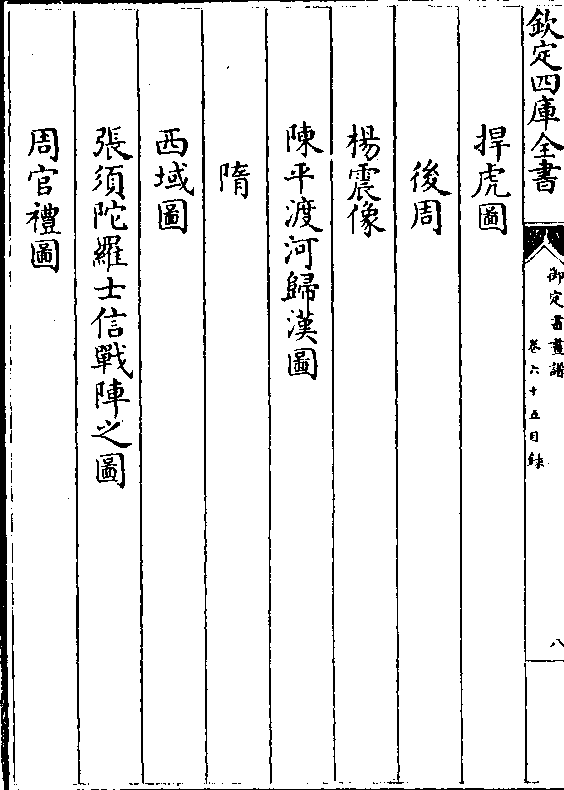 欽定四庫全書
御定書畫譜
卷六十五目録
八
捍虎圖
後周
楊震像
陳平渡河歸漢圖
隋
西域圖
張須陀羅士信戰陣之圖
周官禮圖